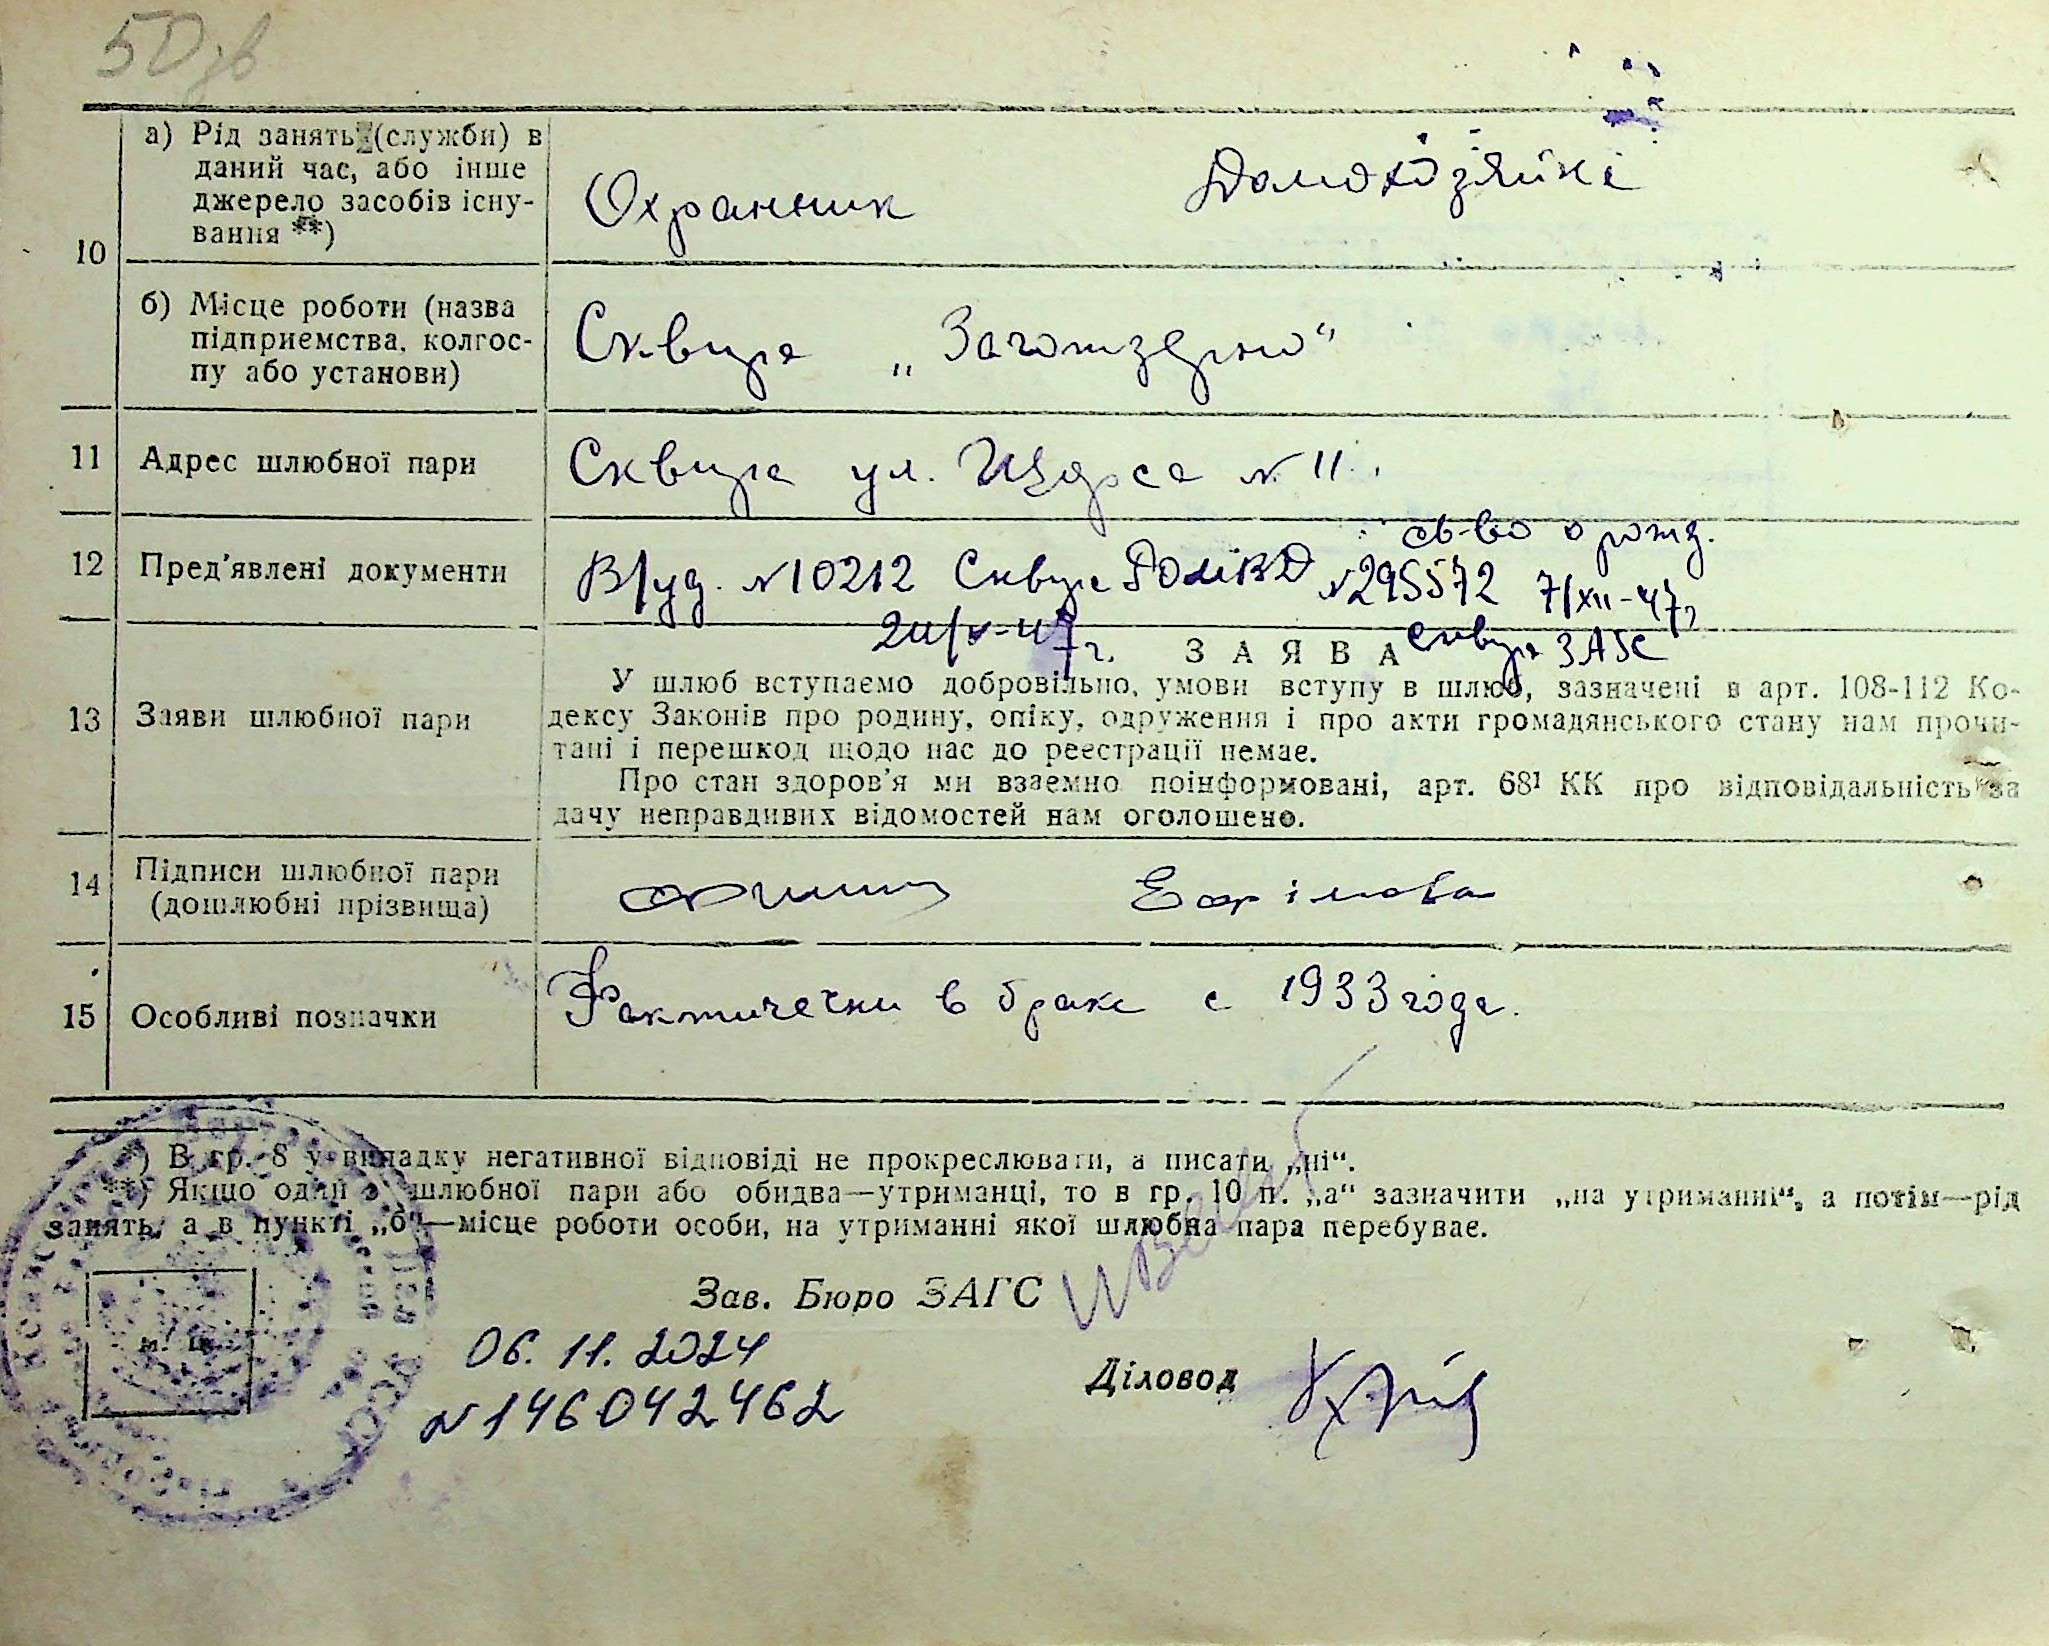 50зв
10
а) Рід занять (служби) в
даний час, або інше
джерело засобів існу-
вання **)
Охранник Домохозяйка
б) Місце роботи (назва
підприємства, колгос-
пу або установи)
Сквира „Заготзерно“
11 Адрес шлюбної пари
Сквира ул. Щорса № 11.
12 Пред'явлені документи
В/уд. №10212 Сквир РОМВД
св-во о рожд.
№295572 7/XII-47г
24/V-47г.
Сквир ЗАГС
13 Заяви шлюбної пари
ЗАЯВА
У шлюб вступаємо добровільно, умови вступу в шлюб, зазначені в арт. 108-112 Ко-
дексу Законів про родину, опіку, одруження і про акти громадянського стану нам прочи-
тані і перешкод щодо нас до реєстрації немає.
Про стан здоров'я ми взаємно поінформовані, арт. 68¹ КК про відповідальність за
дачу неправдивих відомостей нам оголошено.
14 Підписи шлюбної пари
(дошлюбні прізвища)
Єфімова
15 Особливі позначки
Фактически в браке с 1933 года.
*) В гр. 8 у випадку негативної відповіді не прокреслювати, а писати „ні“.
**) Якщо один з шлюбної пари або обидва—утриманці, то в гр. 10 п. „а“ зазначити „на утриманні“, а потім—рід
занять, а в пункті „б“—місце роботи особи, на утриманні якої шлюбна пара перебуває.
Зав. Бюро ЗАГС
м. п.
06.11.2024
№146042462
Діловод